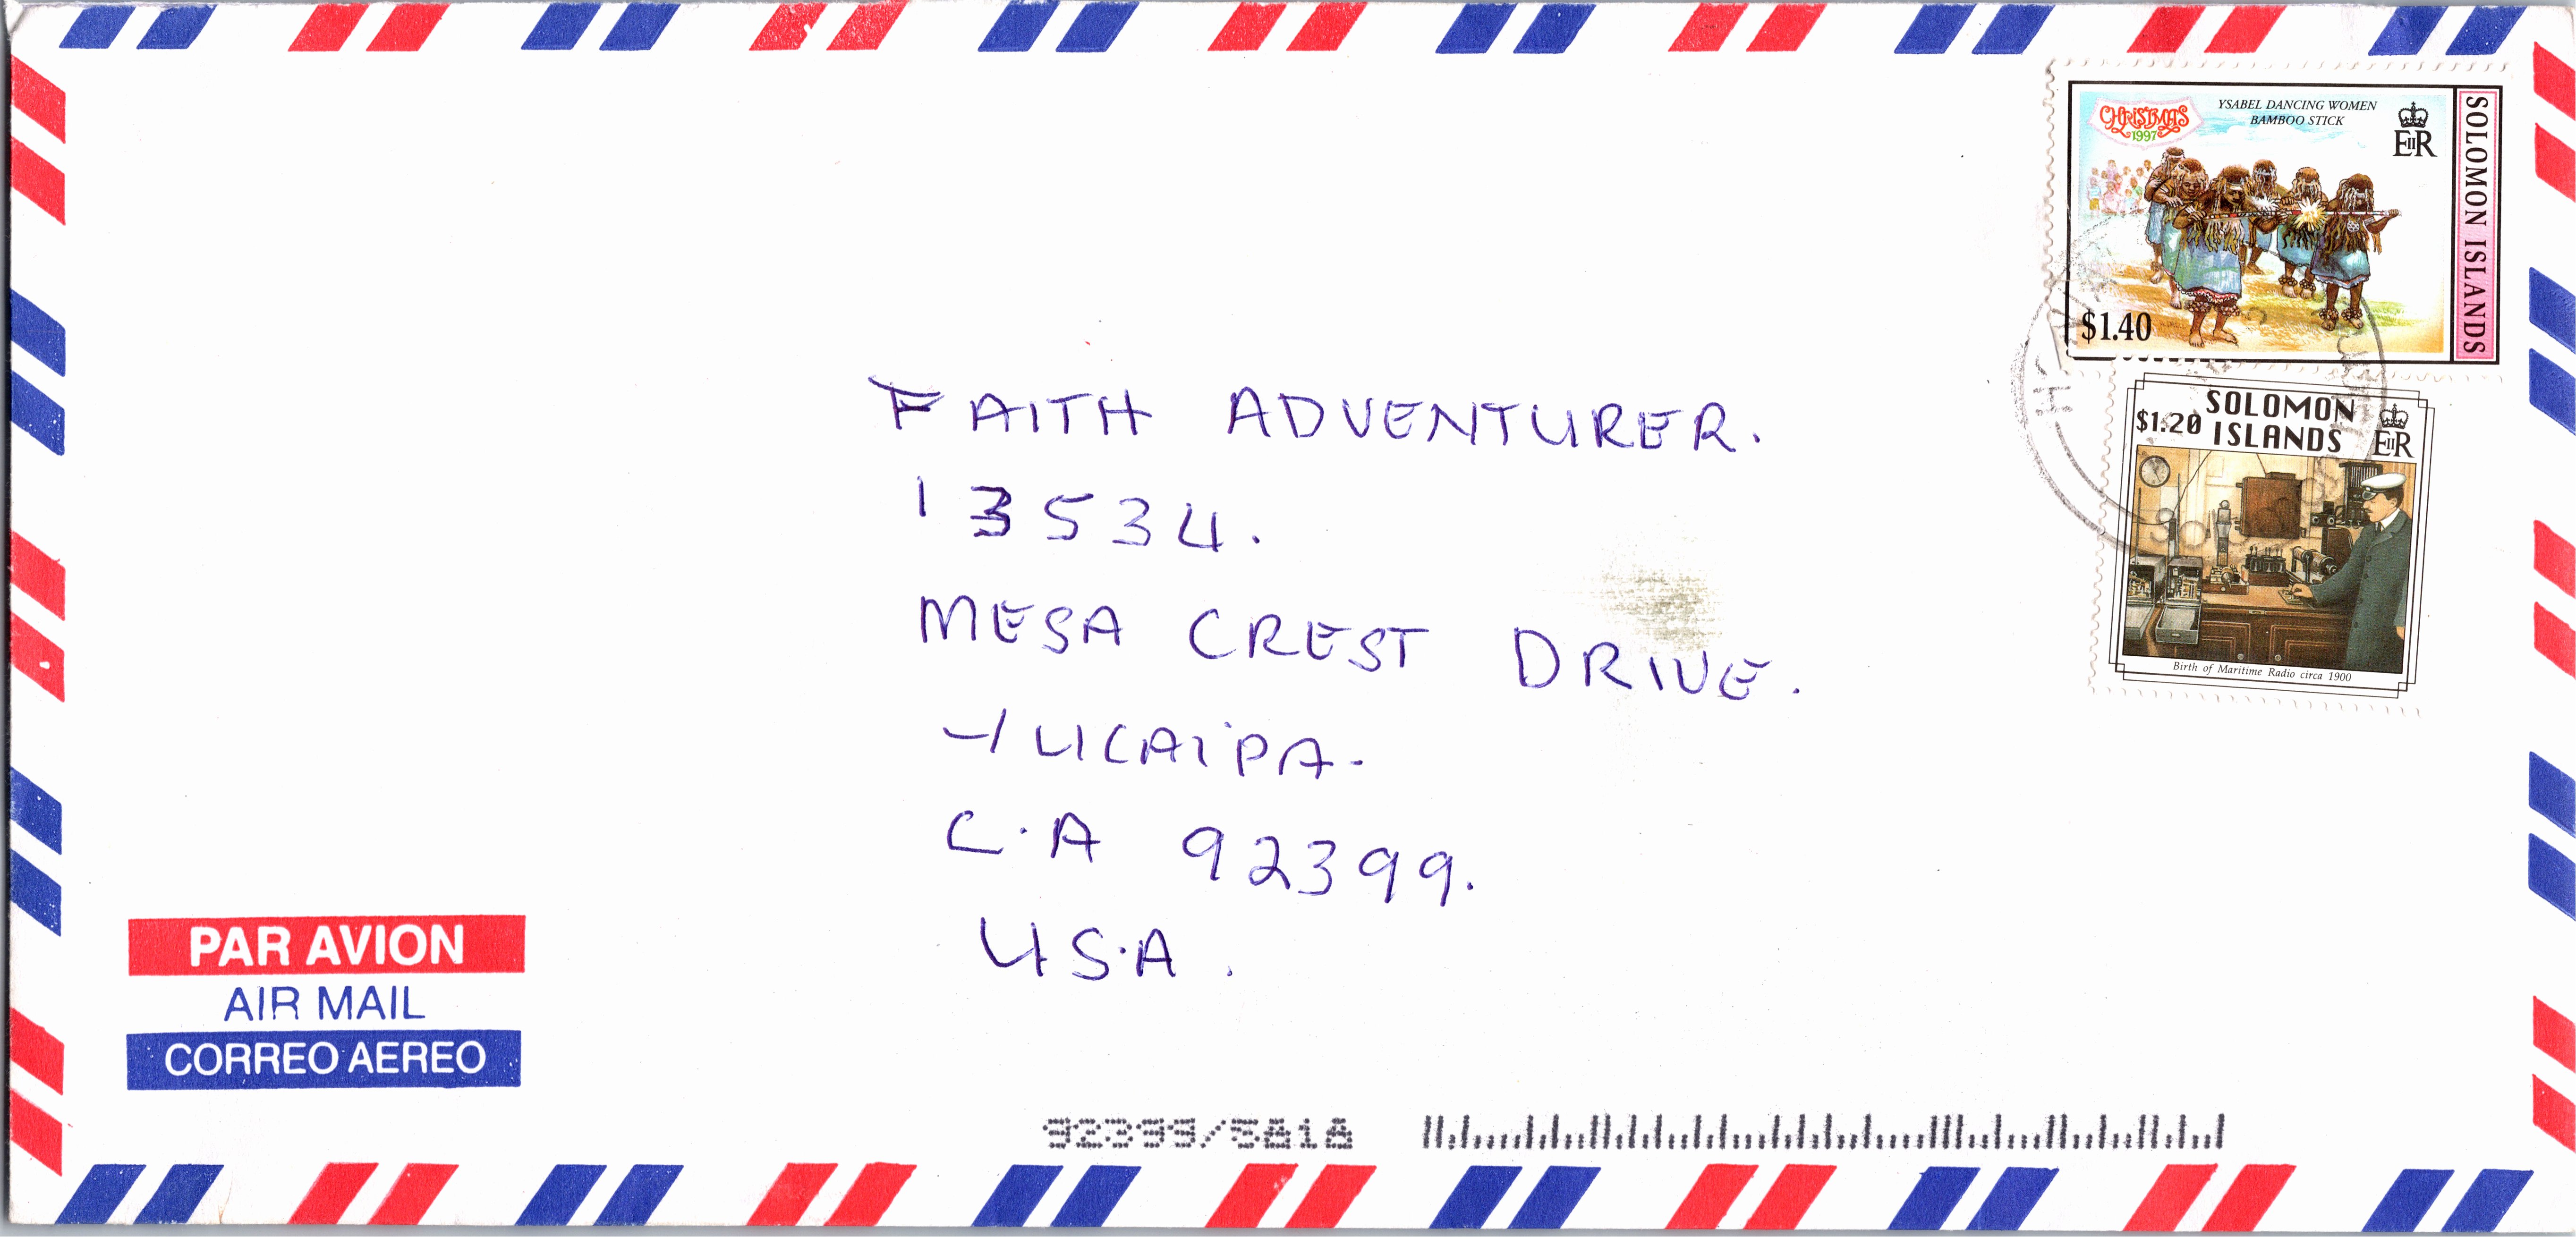 CHRISTMAS
1997
YSABEL DANCING WOMEN
BAMBOO STICK
EIIR
SOLOMON ISLANDS
$1.40
SOLOMON
ISLANDS
$1.20
EIIR
Birth of Maritime Radio circa 1900
FAITH ADVENTURER.
13534.
MESA CREST DRIVE.
YUCAiPA.
C.A 92399.
U.S.A.
PAR AVION
AIR MAIL
CORREO AEREO
92399/5818